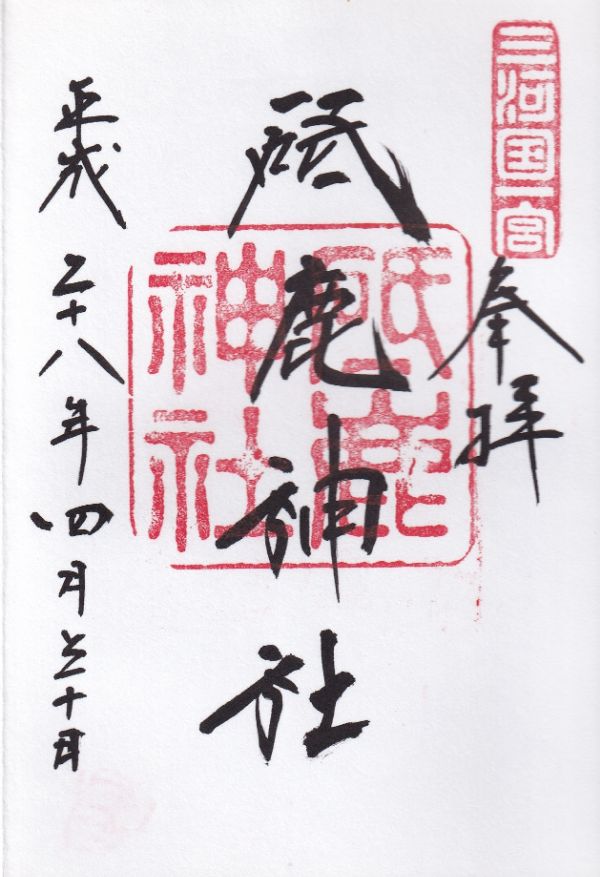 三河国一宮
奉拝
砥鹿神社
砥鹿神社
平成二十八年四月三十日